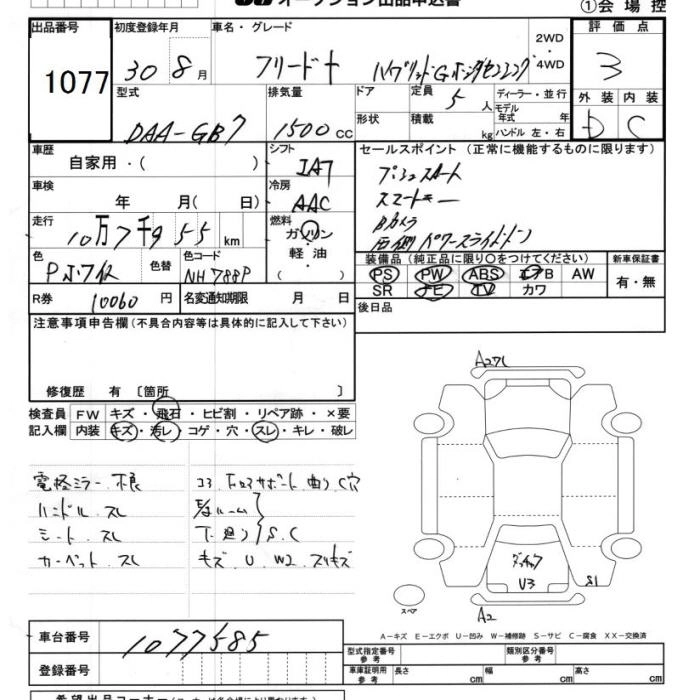 オークション出品申込書
①会場控
出品番号 初度登録年月 車名・グレード 2WD・4WD 評価点
1077 30 8月 フリード+ ハイブリッドGホンダセンシング 3
型式 排気量 ドア 定員 5人 ディーラー・並行 外装 内装
DAA-GB7 1500cc 形状 積載 kg モデル年式 年 ハンドル 左・右 D C
車歴 シフト セールスポイント(正常に機能するものに限ります)
自家用・( ) IAT プッシュスタート
車検 冷房 スマートキー
年 月( 日) AAC Bカメラ
走行 燃料 両側パワースライドドア
10万7千955km ガソリン・軽油・( )
色 色替 色コード 装備品(純正品に限り○をつけてください) 新車保証書
Pホワイト NH788P PS PW ABS エアB AW 有・無
SR ナビ TV カワ
R券 10060円 名変通知期限 月 日 後日品
注意事項申告欄(不具合内容等は具体的に記入して下さい)
修復歴 有〔箇所 〕
検査員記入欄 FW キズ・飛石・ヒビ割・リペア跡・×要
内装 キズ・汚レ・コゲ・穴・スレ・キレ・破レ
電軽ミラー不良 コアロアサポート曲り C穴
ハンドル.スレ
シート.スレ 下廻り S.C
カーペット.スレ キズ.U.W2.スリキズ
ダッチャク
U3 S1
スペア A2
A-キズ E-エクボ U-凹み W-補修跡 S-サビ C-腐食 XX-交換済
車台番号 1077585
登録番号
型式指定番号 参考 類別区分番号 参考
車庫証明用 参考 長さ cm 幅 cm 高さ cm
希望出品コーナー